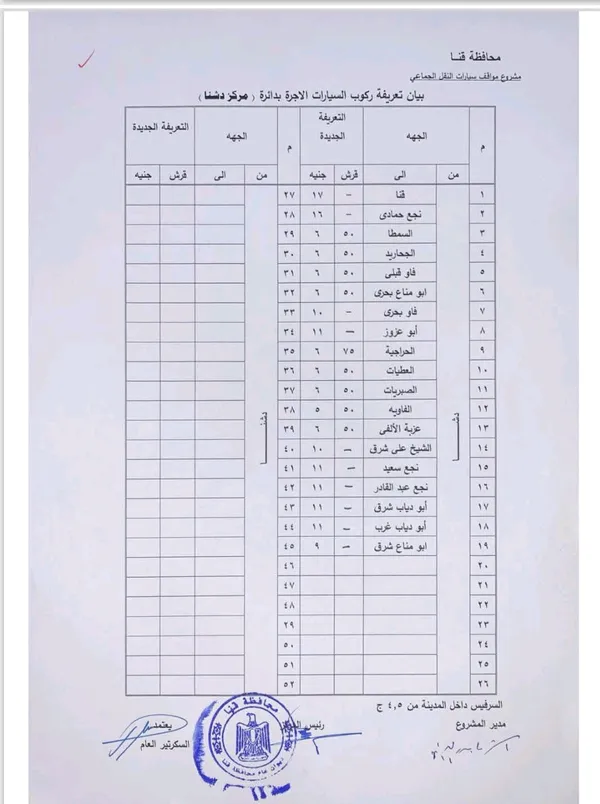 محافظة قنـا
مشروع مواقف سيارات النقل الجماعي
بيان تعريفة ركوب السيارات الاجرة بدائرة ( مركز دشنا )
م الجهه التعريفة الجديدة م الجهه التعريفة الجديدة
من الى قرش جنيه من الى قرش جنيه
١ قنا - ١٧ ٢٧
٢ نجع حمادى - ١٦ ٢٨
٣ السمطا ٥٠ ٦ ٢٩
٤ الجحاريد ٥٠ ٦ ٣٠
٥ فاو قبلى ٥٠ ٦ ٣١
٦ ابو مناع بحرى ٥٠ ٦ ٣٢
٧ فاو بحرى - ١٠ ٣٣
٨ أبو عزوز – ١١ ٣٤
٩ الحراجية ٧٥ ٦ ٣٥
١٠ العطيات ٥٠ ٦ ٣٦
١١ الصبريات ٥٠ ٦ ٣٧
١٢ الفاويه ٥٠ ٥ ٣٨
١٣ عزبة الألفى ٥٠ ٦ ٣٩
دشنـــا دشنـــا
١٤ الشيخ على شرق – ١٠ ٤٠
١٥ نجع سعيد – ١١ ٤١
١٦ نجع عبد القادر – ١١ ٤٢
١٧ أبو دياب شرق – ١١ ٤٣
١٨ أبو دياب غرب – ١١ ٤٤
١٩ ابو مناع شرق – ٩ ٤٥
٢٠ ٤٦
٢١ ٤٧
٢٢ ٤٨
٢٣ ٢٩
٢٤ ٥٠
٢٥ ٥١
٢٦ ٥٢
السرفيس داخل المدينة من ٤,٥ ج
مدير المشروع رئيس يعتمد
السكرتير العام
محافظة قنا
ديوان عام محافظة قنا